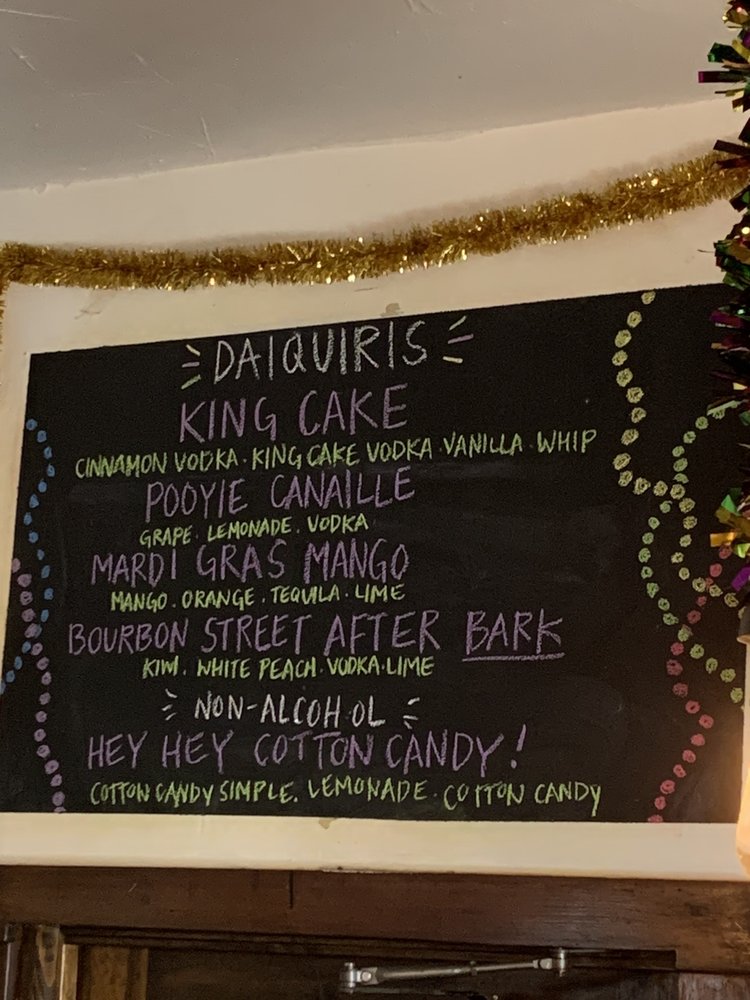 DAIQUIRIS
KING CAKE
CINNAMON VODKA · KING CAKE VODKA · VANILLA · WHIP
POOYIE CANAILLE
GRAPE . LEMONADE . VODKA
MARDI GRAS MANGO
MANGO . ORANGE . TEQUILA · LIME
BOURBON STREET AFTER BARK
KIWI . WHITE PEACH · VODKA · LIME
NON-ALCOHOL
HEY HEY COTTON CANDY!
COTTON CANDY SIMPLE . LEMONADE · COTTON CANDY